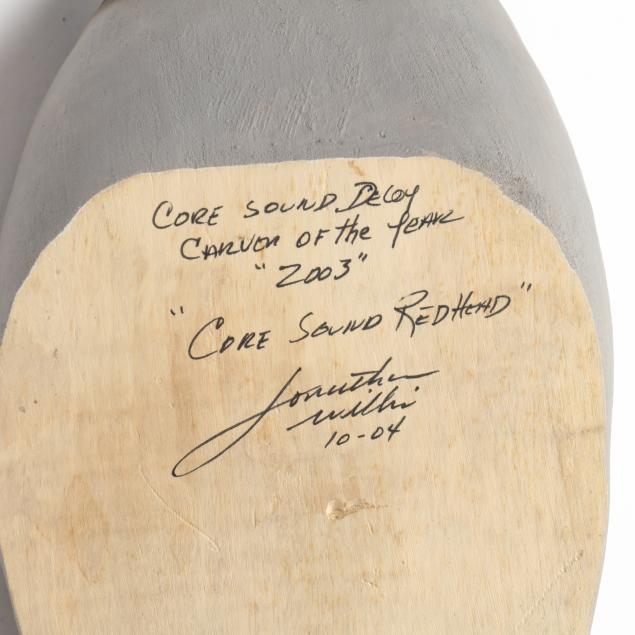 CORE SOUND DECOY
CARVER OF the YEAR
"2003"
"CORE SOUND REDHEAD"
Jonathan
Willis
10-04